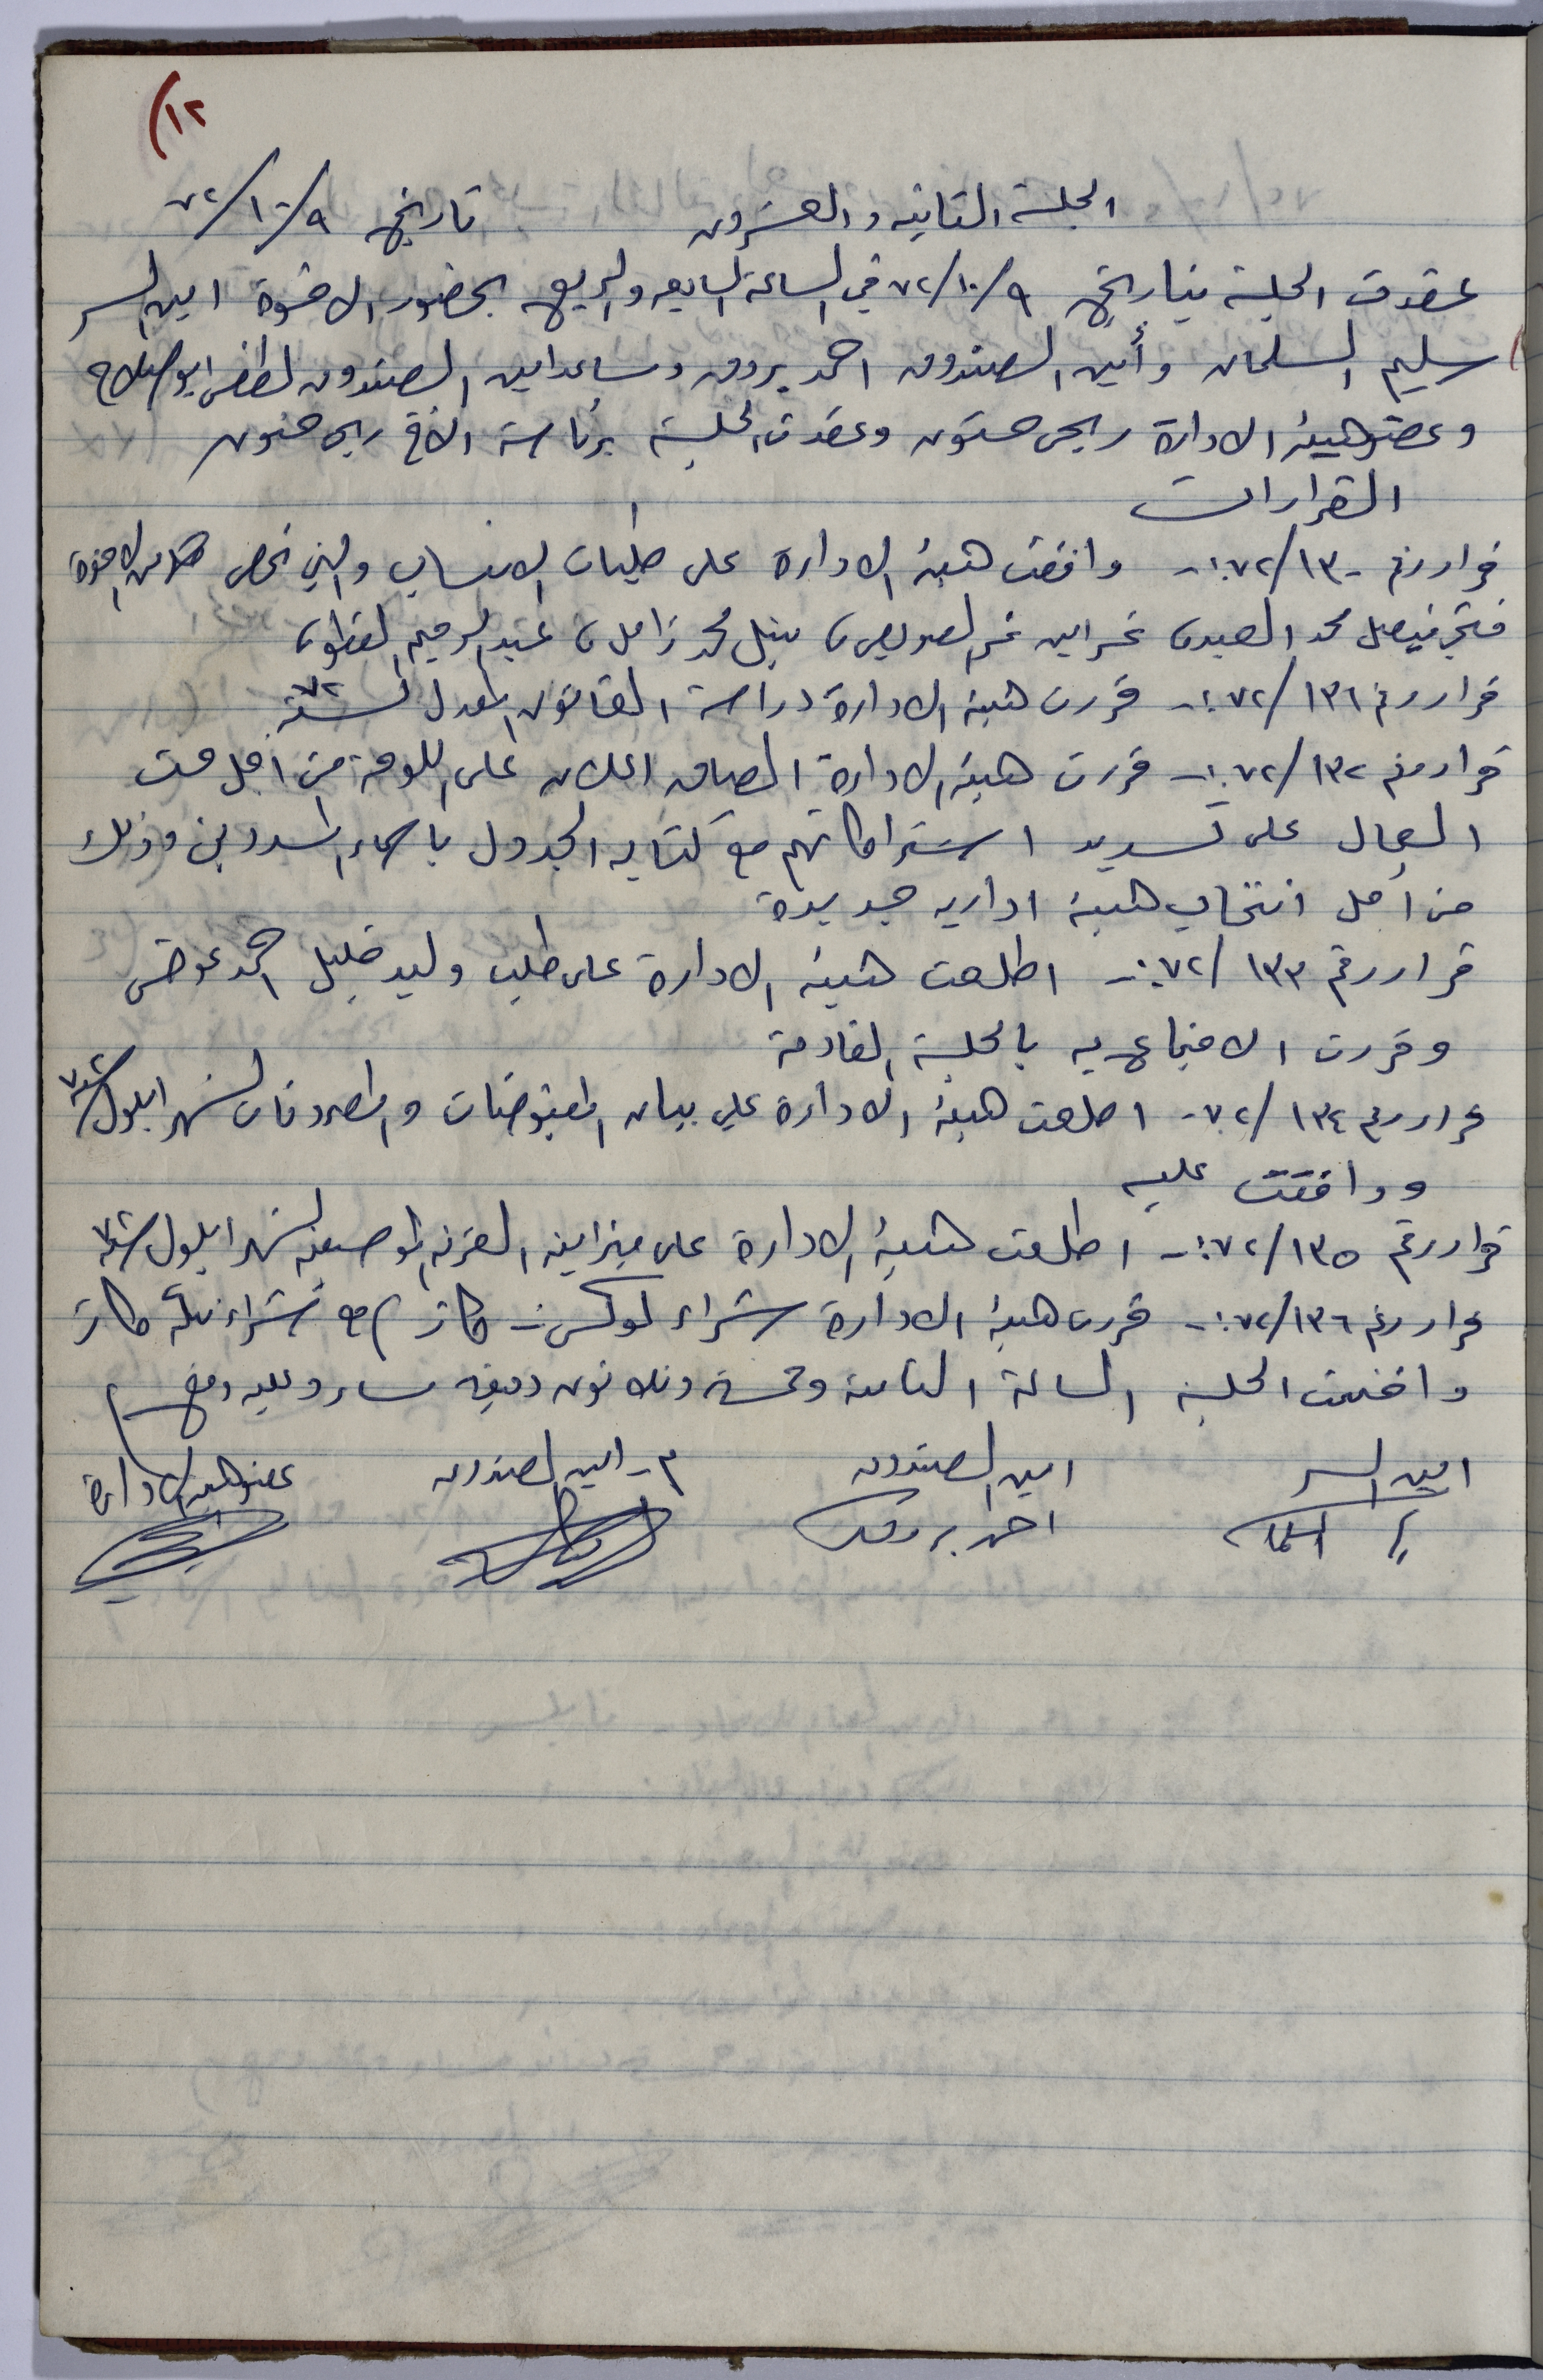 (١٢
الجلسة الثانيه والعشرون تاريخ ٩/١٠/٧٢
عقدت الجلسة بتاريخ ٩/١٠/٧٢ في الساعة السابعه والربع بحضور الاخوة امين السر
سليم السلمان وأمين الصندوق احمد بروق ومساعد امين الصندوق لطفي ابو صلاح
وعضو هيئة الادارة ربحي حنون وعقدت الجلسة برئاسة الاخ ربحي حنون
القرارات
قرار رقم ١٣٠/٧٢:- وافقت هيئة الادارة على طلبات الانتساب والتي تخص كلا من الاخوة
فتحي فيصل محمد العبد، نمر امين نمر، نبيل محمد زامل، عبد الرحيم
قرار رقم ١٣١/٧٢:- قررت هيئة الادارة دراسة القانون المعدل لسنة ٧٢
قرار رقم ١٣٢/٧٢:- قررت هيئة الادارة الصاق اعلان على اللوحة من أجل حث
العمال على تسديد اشتراكاتهم مع كتابه الجدول باسماء المسددين وذلك
من أجل انتخاب هيئة اداريه جديدة
قرار رقم ١٣٣/٧٢:- اطلعت هيئة الادارة على طلب وليد خليل احمد عوض
وقررت الاجتماع به بالجلسة القادمة
قرار رقم ١٣٤/٧٢- اطلعت هيئة الادارة على بيان المقبوضات والمصروفات لشهر ايلول سنة ٧٢
ووافقت عليه
قرار رقم ١٣٥/٧٢:- اطلعت هيئة الادارة على ميزانية الفرنه لشهر ايلول سنة ٧٢
قرار رقم ١٣٦/٧٢:- قررت هيئة الادارة شراء لوكس - كاز مع شراء تنكة كاز
واختتمت الجلسة الساعة الثامنة وخمسة وثلاثون دقيقه مساء وعليه وقع
امين السر امين الصندوق م- امين الصندوق عضو هيئة الادارة
احمد بروق